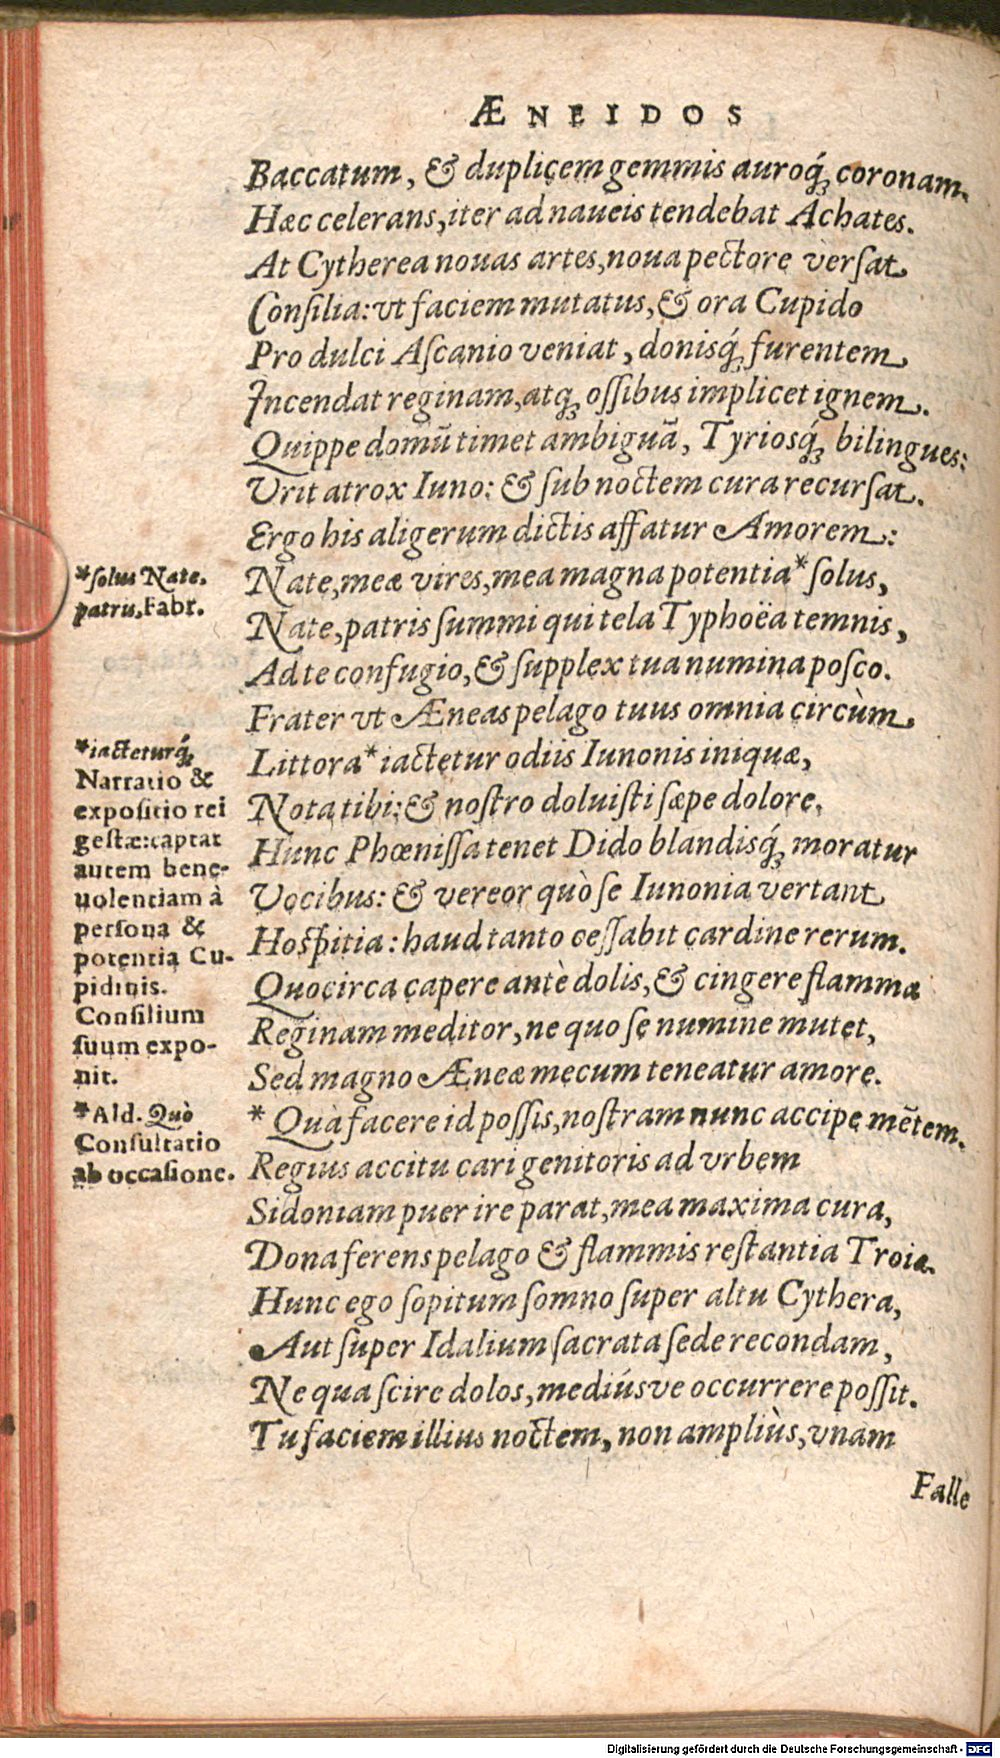 ÆNEIDOS
Baccatum, & duplicem gemmis auroq́; coronam.
Hæc celerans, iter ad naueis tendebat Achates.
At Cytherea nouas artes, noua pectore versat
Consilia: vt faciem mutatus, & ora Cupido
Pro dulci Ascanio veniat, donisq́; furentem
Incendat reginam, atq; ossibus implicet ignem.
Quippe domū timet ambiguā, Tyriosq́; bilingues:
Vrit atrox Iuno: & sub noctem cura recursat.
Ergo his aligerum dictis affatur Amorem:
*solus Nate.
patris, Fabr.
Nate, meæ vires, mea magna potentia* solus,
Nate, patris summi qui tela Typhoëa temnis,
Ad te confugio, & supplex tua numina posco.
Frater vt Æneas pelago tuus omnia circùm
*iacteturq́;
Narratio &
expositio rei
gestæ: captat
autem bene-
uolentiam à
persona &
potentia Cu-
pidinis.
Consilium
suum expo-
nit.
Littora* iactetur odiis Iunonis iniquæ,
Nota tibi: & nostro doluisti sæpe dolore.
Hunc Phœnissa tenet Dido blandisq́; moratur
Vocibus: & vereor quò se Iunonia vertant
Hospitia: haud tanto cessabit cardine rerum.
Quocirca capere antè dolis, & cingere flamma
Reginam meditor, ne quo se numine mutet,
Sed magno Æneæ mecum teneatur amore.
*Ald. Quò
Consultatio
ab occasione.
* Quà facere id possis, nostram nunc accipe mētem.
Regius accitu cari genitoris ad vrbem
Sidoniam puer ire parat, mea maxima cura,
Dona ferens pelago & flammis restantia Troiæ.
Hunc ego sopitum somno super altu Cythera,
Aut super Idalium sacrata sede recondam,
Ne qua scire dolos, mediúsve occurrere possit.
Tu faciem illius noctem, non ampliùs, vnam
Falle
Digitalisierung gefördert durch die Deutsche Forschungsgemeinschaft - DFG